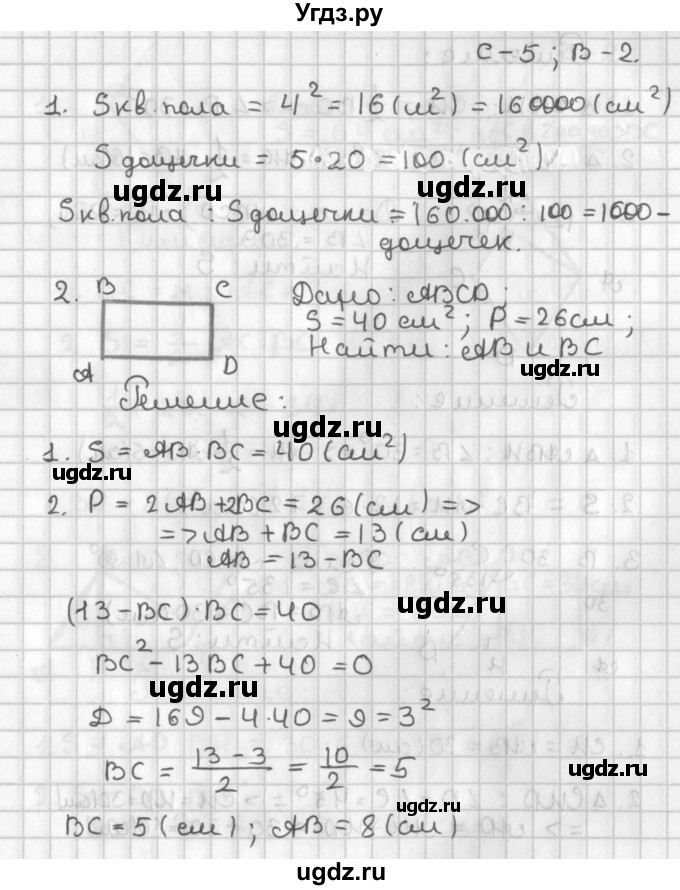 Угдз.ру
С-5; В-2.
1. Sкв.пола = 4² = 16 (м²) = 160000 (см²)
Sдощечки = 5·20 = 100 (см²)
ugdz.ru ugdz.ru
Sкв.пола : Sдощечки = 160.000 : 100 = 1600 -
дощечек.
2. B C Дано: ABCD;
S = 40 см²; P = 26см;
Найти: AB и BC
A D ugdz.ru
Решение:
ugdz.ru
1. S = AB·BC = 40 (см²)
ugdz.ru
2. P = 2AB + 2BC = 26 (см) =>
=> AB + BC = 13 (см)
AB = 13 - BC
(13 - BC)·BC = 40 ugdz.ru
BC² - 13BC + 40 = 0
ugdz.ru
Д = 169 - 4·40 = 9 = 3²
BC = (13 - 3)/2 = 10/2 = 5
ugdz.ru
ugdz.ru
BC = 5 (см); AB = 8 (см)
ugdz.ru